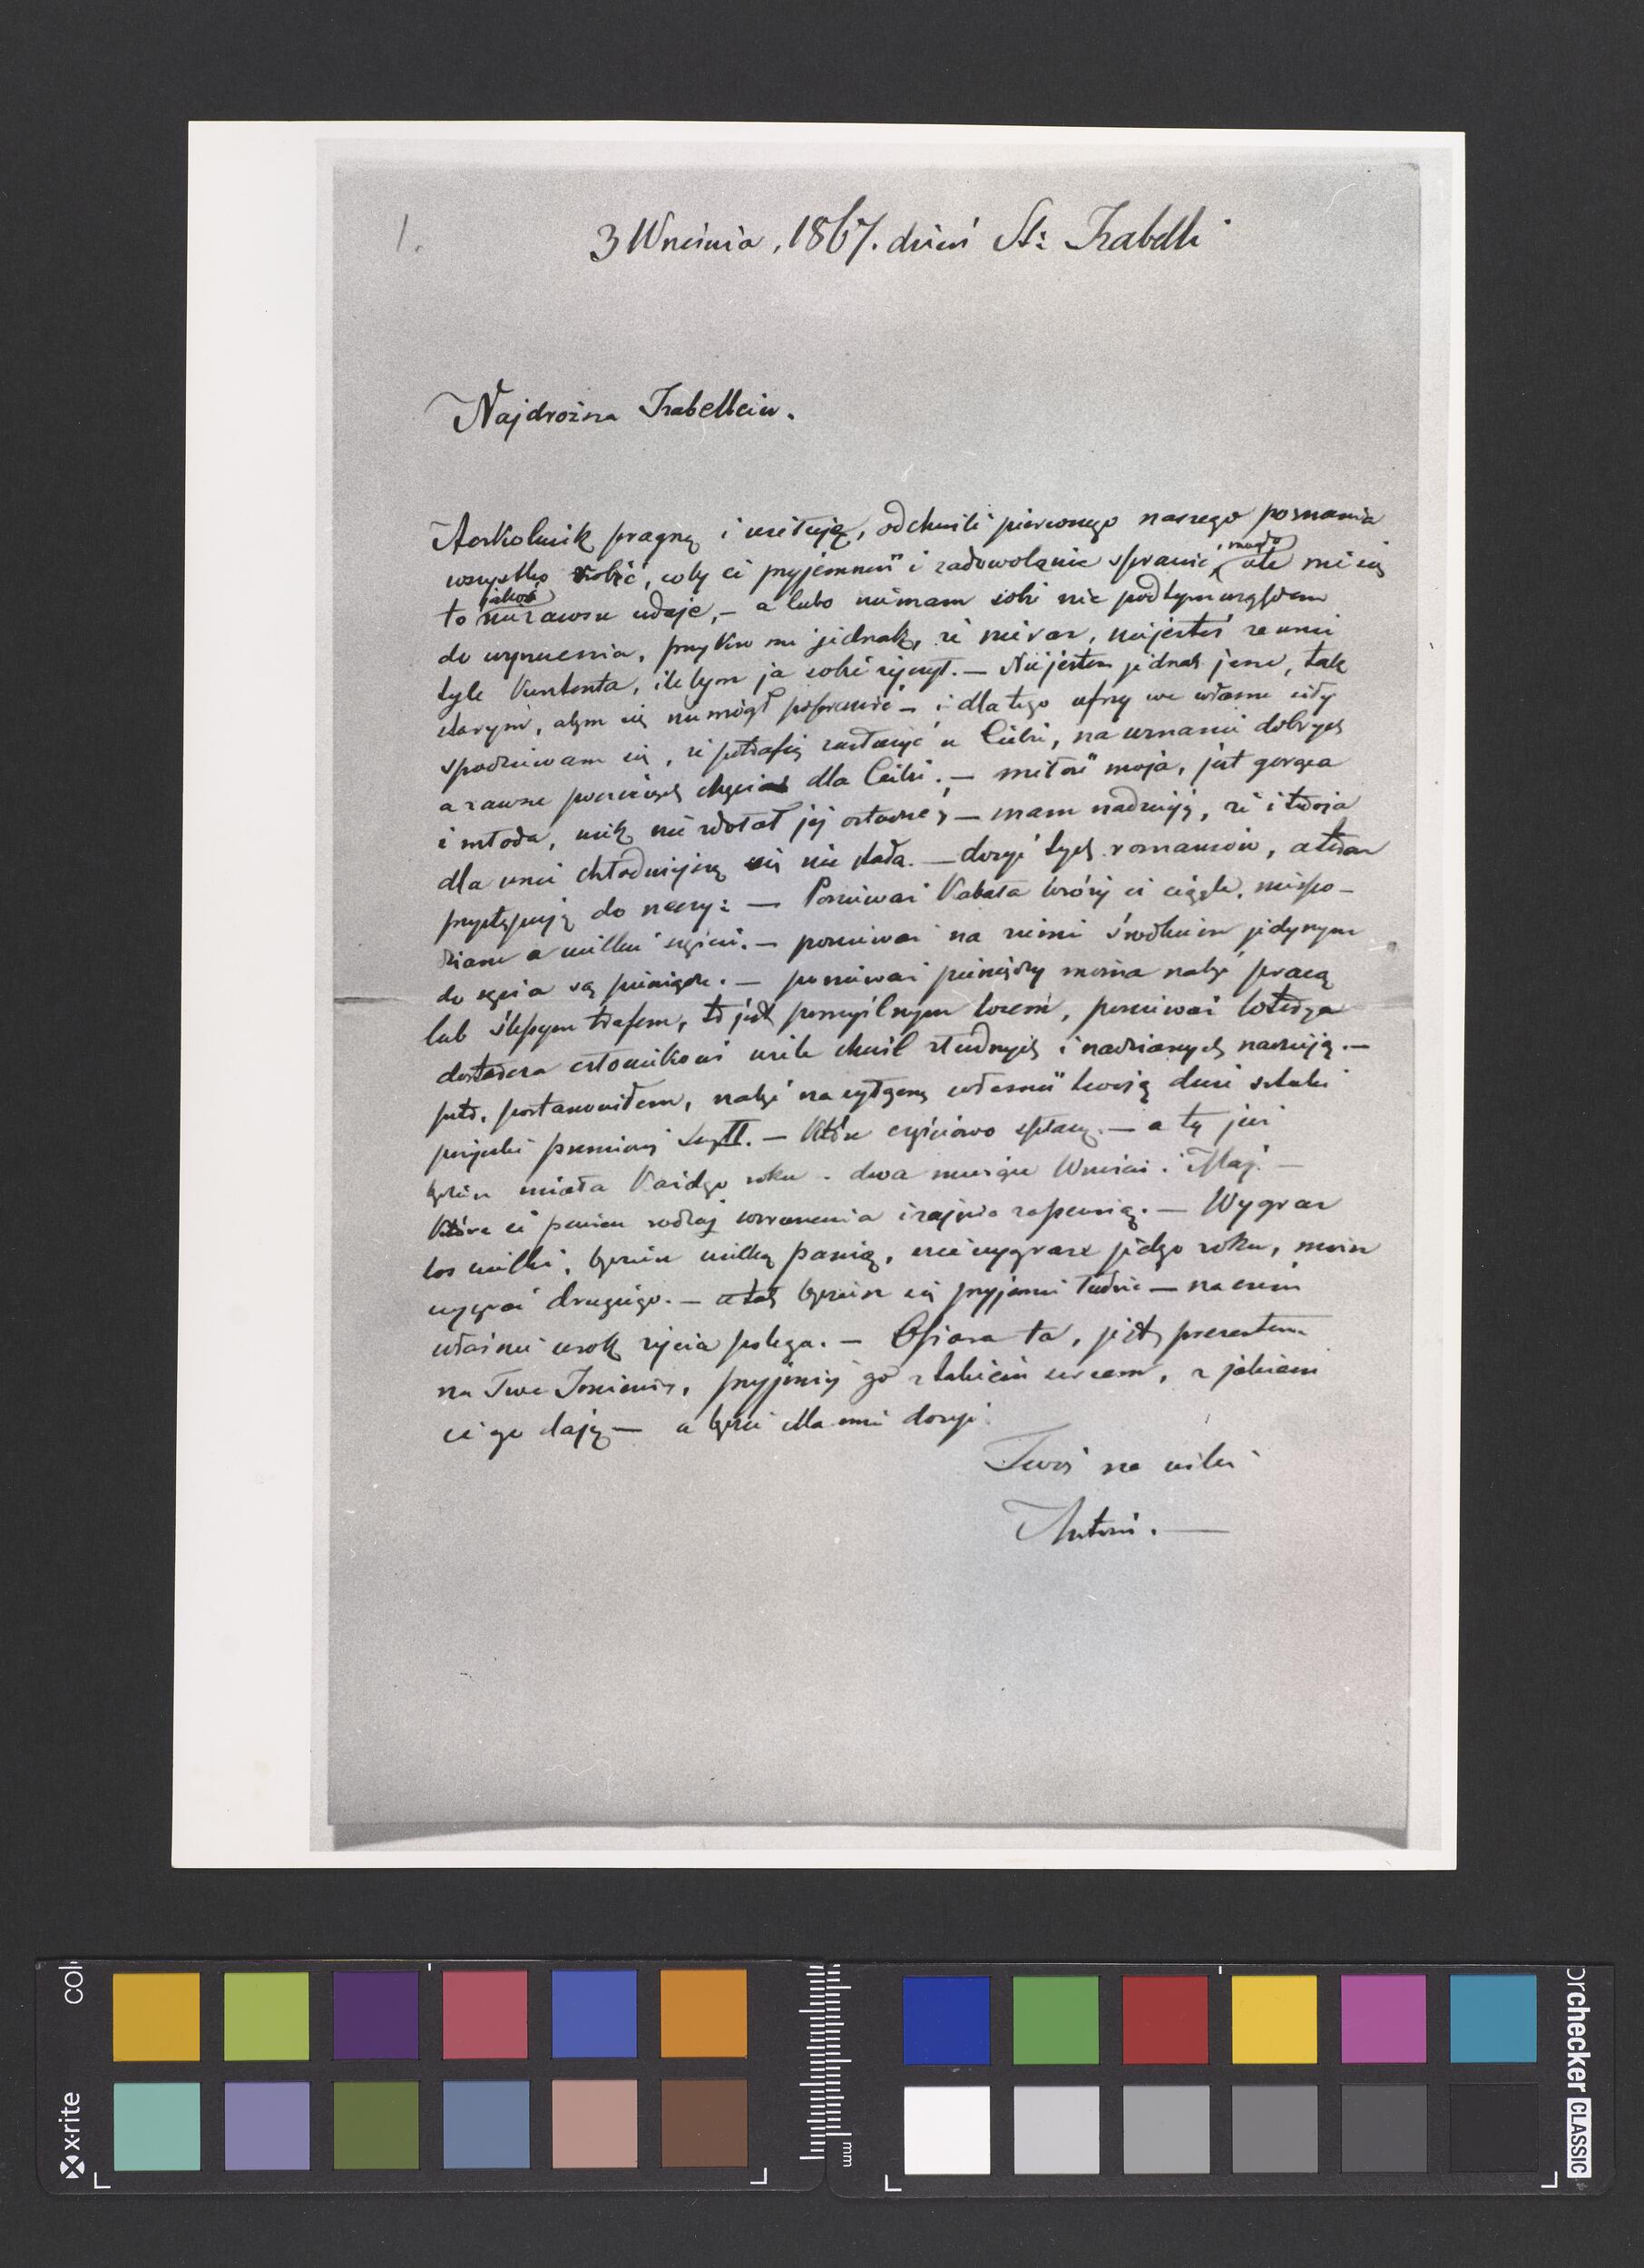 1.
3 Września, 1867. dzień St: Izabelli
Najdroższa Izabelleciu.
Aczkolwiek pragnę i usiłuję, od chwili pierwszego naszego poznania
wszystko robić, coby ci przyjemność i zadowolenie sprawić, ale mi się
to jakoś niezawsze udaje, — a lubo niemam sobie nic pod tym względem
do wyrzucenia, przykro mi jednak, że nieraz, niejesteś ze mnie
tyle kontenta, ile bym ja sobie życzył. — Niejestem jednak jeszcze, tak
starym, abym się niemógł poprawić — i dlatego ufny we własne siły
spodziewam się, że potrafię zasłużyć u Ciebie, na uznanie dobrych
a zawsze poczciwych chęci dla Ciebie. — miłość moja, jest gorąca
i młoda, wiek nie zdołał jej ostudzić, — mam nadzieję, że i twoja
dla mnie chłodniejszą się nie stała. — dosyć tych romansów, a teraz
przystępuję do rzeczy: — Ponieważ Kabała wróży ci ciągle, niespo-
dziane a wielkie szczęście. — ponieważ na ziemi środkiem jedynym
do szczęścia są pieniądze. — ponieważ pieniędzy można nabyć pracą
lub ślepym trafem, to jest pomyślnym losem, ponieważ loterya
dostarcza człowiekowi wiele chwil złudnych i nadzianych nadzieją. —
przeto, postanowiłem, nabyć na wyłączną własność twoją dwie sztuki
pożyczki premiowej — które częściowo spłacę. — a tę już
będziesz miała każdego roku dwa miesiące Wrzesień i Maj —
które ci pewien rodzaj wzruszenia i zajęcia zapewnią. — Wygrasz
los wielki, będziesz wielką panią, nie wygrasz jednego roku, możesz
wygrać drugiego. — a tak będziesz się przyjemnie łudzić — na czem
właśnie urok życia polega. — Ofiara ta, jest prezentem
na Twe Imieniny, przyjmij go z takiem sercem, z jakiem
ci go daję — a będzie dla mnie dosyć.
Twój na wieki
Antoni. —
colorchecker CLASSIC
x-rite
mm